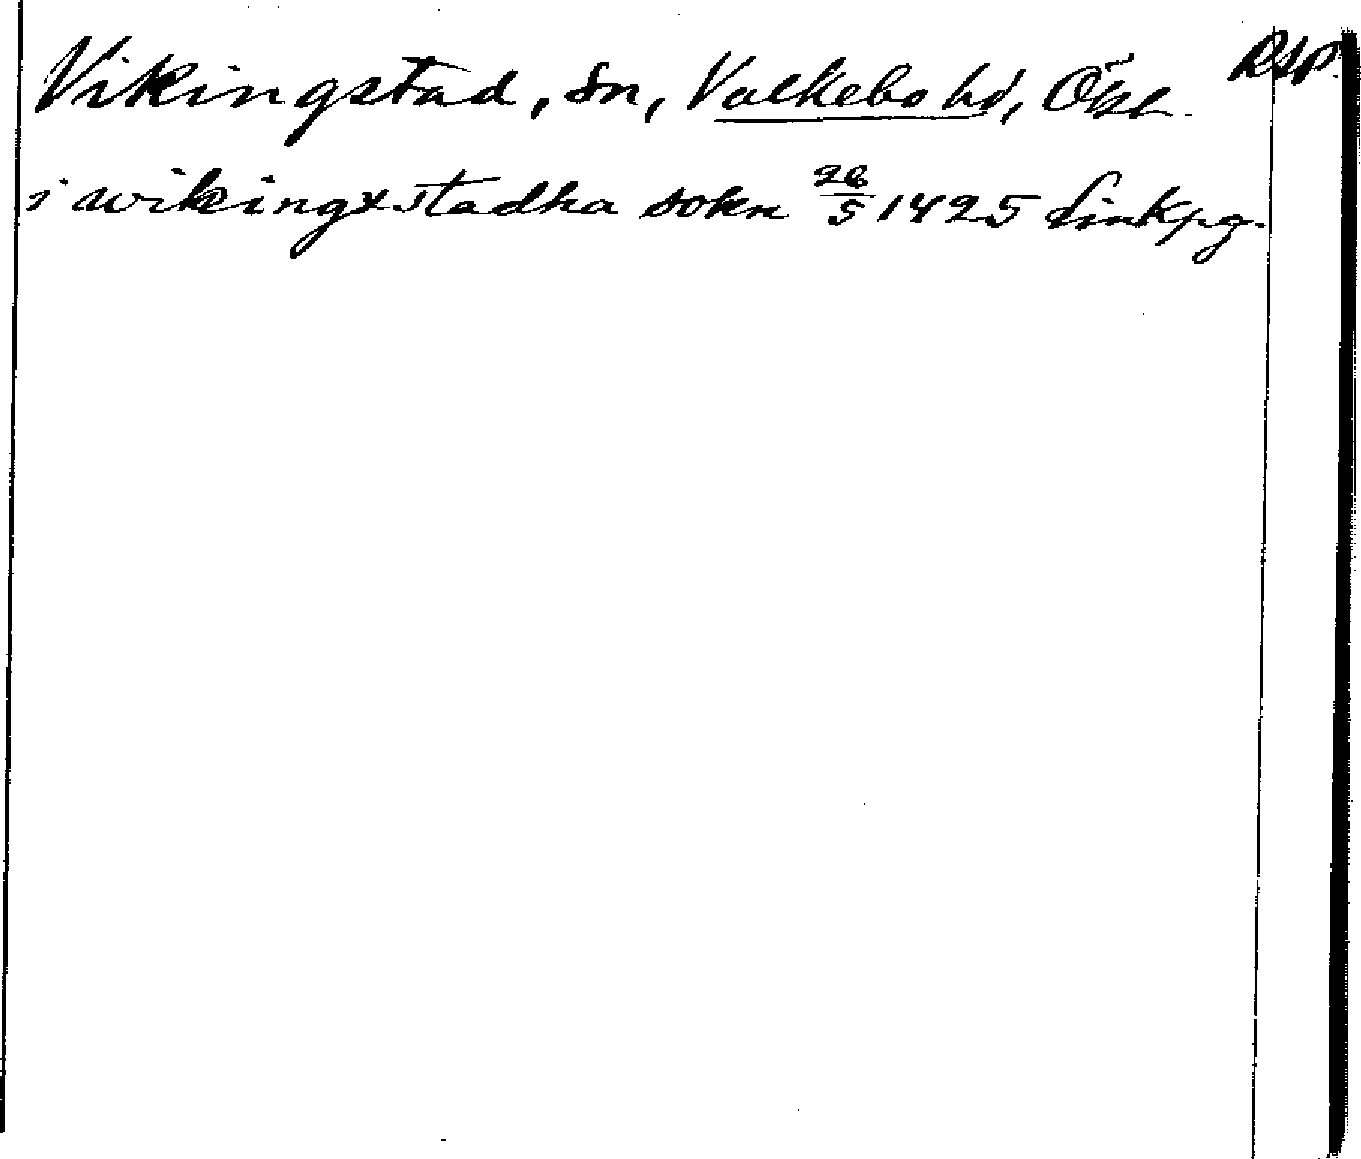 Vikingstad, sn, Valkebo hd, Ögl. RAp.
i wikingxstadha sokn 26/5 1425 Linkpg.